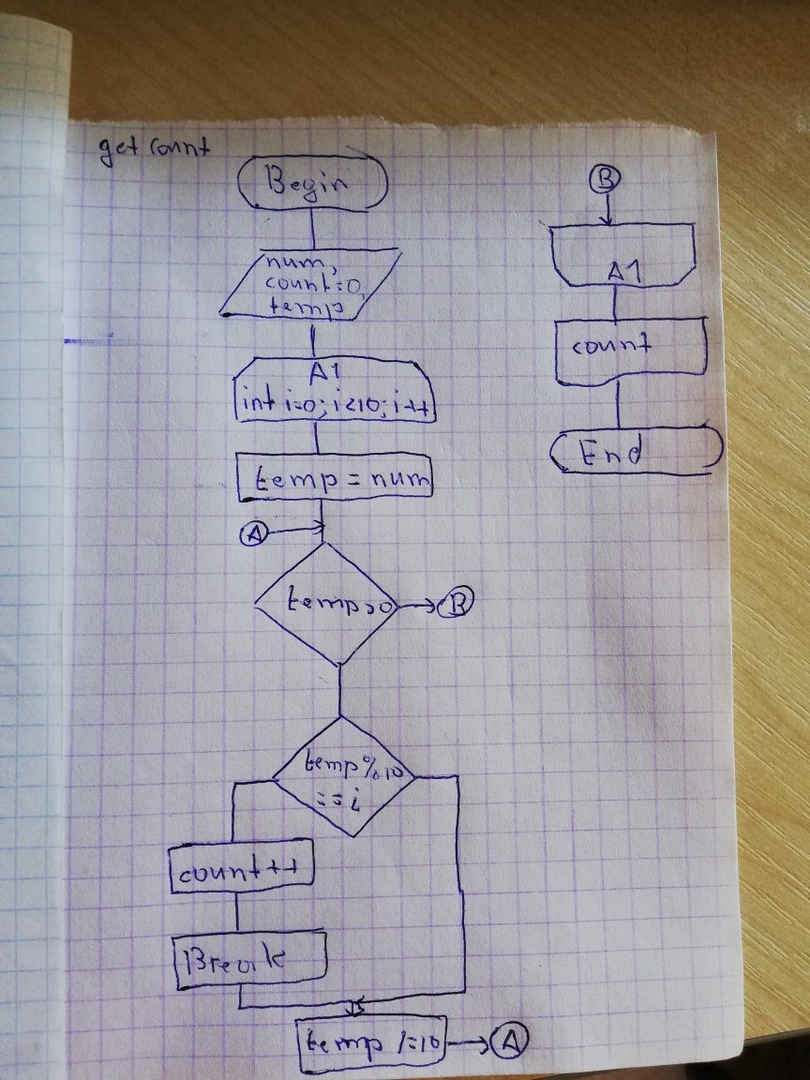 get count
Begin
num,
count=0,
temp
A1
int i=0; i<10; i++
temp = num
A
temp>0
B
temp%10
==i
count++
Break
temp /=10
A
B
A1
count
End